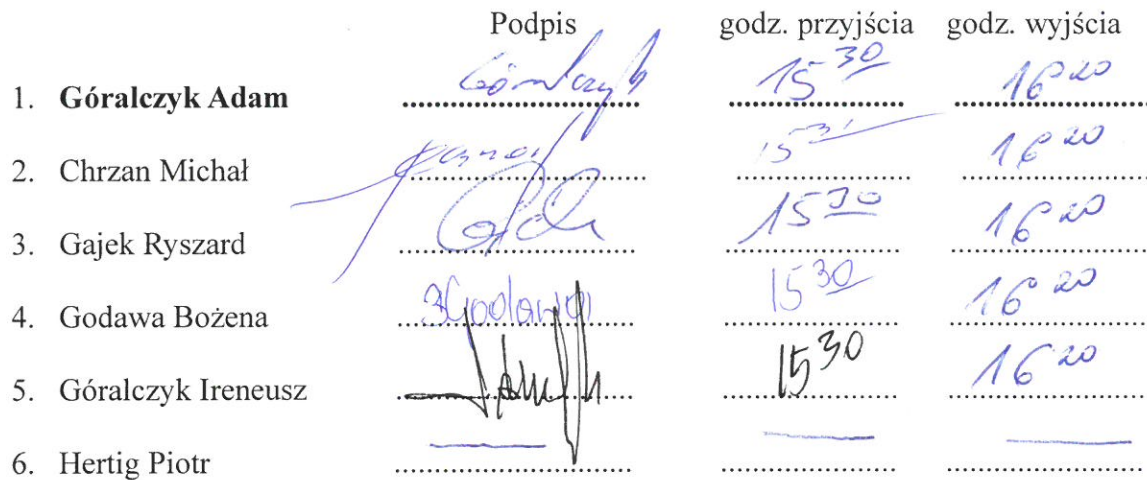 Podpis godz. przyjścia godz. wyjścia
1. Góralczyk Adam Góralczyk 15 30 16 20
2. Chrzan Michał 16 20
3. Gajek Ryszard 15 30 16 20
4. Godawa Bożena BGodawa 15 30 16 20
5. Góralczyk Ireneusz 15 30 16 20
6. Hertig Piotr